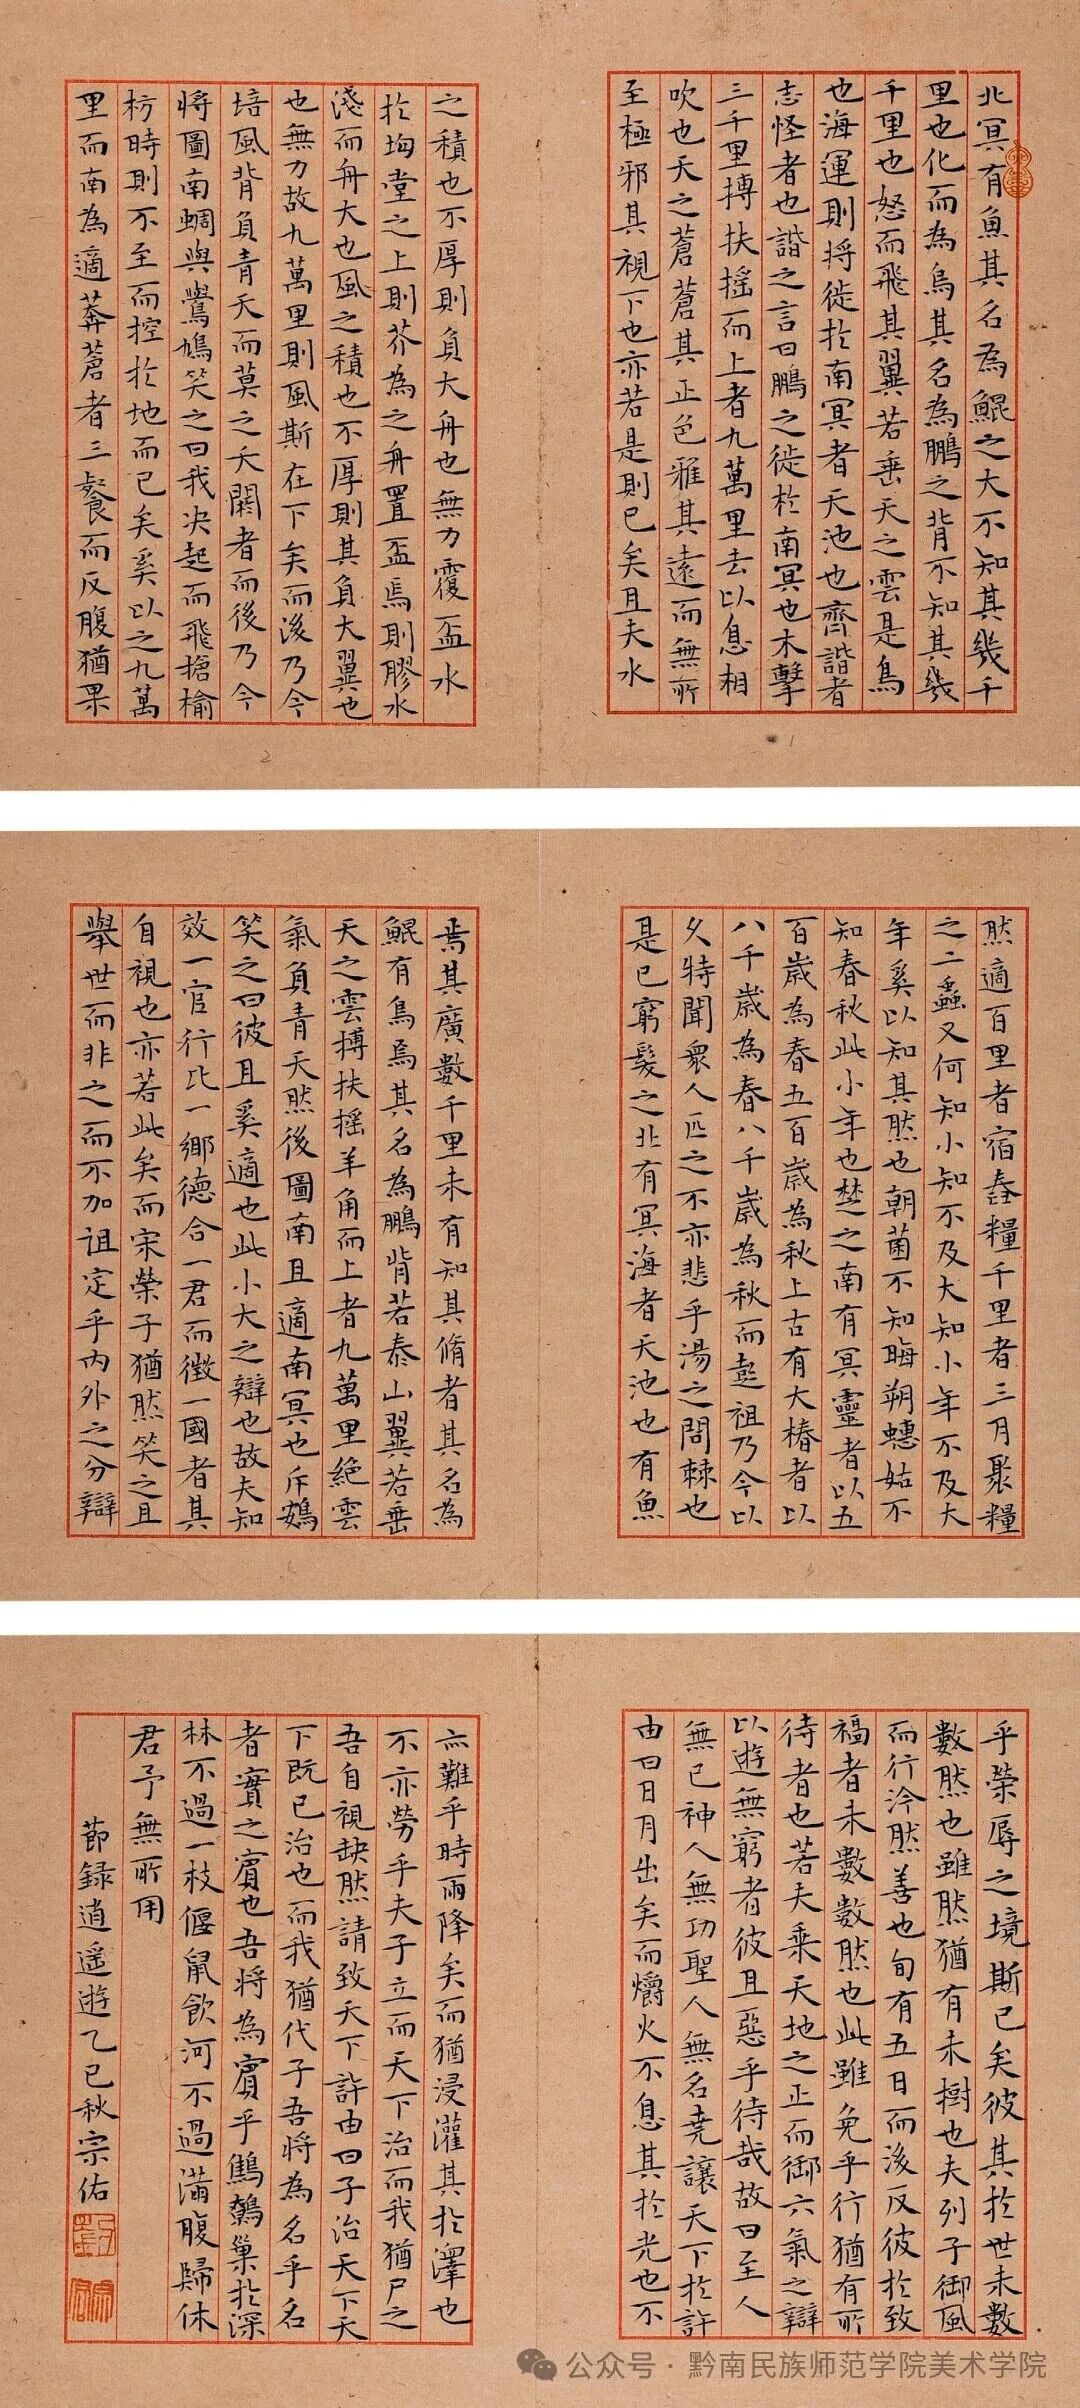 北冥有魚其名為鯤之大不知其幾千
里也化而為鳥其名為鵬之背不知其幾
千里也怒而飛其翼若垂天之雲是鳥
也海運則將徙於南冥者天池也齊諧者
志怪者也諧之言曰鵬之徙於南冥也水擊
三千里搏扶搖而上者九萬里去以息相
吹也天之蒼蒼其正色雅其遠而無所
至極邪其視下也亦若是則已矣且夫水
之積也不厚則負大舟也無力覆盃水
於坳堂之上則芥為之舟置盃焉則膠水
淺而舟大也風之積也不厚則其負大翼也
也無力故九萬里則風斯在下矣而後乃今
培風背負青天而莫之夭閼者而後乃今
將圖南蜩與鷽鳩笑之曰我決起而飛搶榆
枋時則不至而控於地而已矣奚以之九萬
里而南為適莽蒼者三餐而反腹猶果
然適百里者宿舂糧千里者三月聚糧
之二蟲又何知小知不及大知小年不及大
年奚以知其然也朝菌不知晦朔蟪蛄不
知春秋此小年也楚之南有冥靈者以五
百歲為春五百歲為秋上古有大椿者以
八千歲為春八千歲為秋而彭祖乃今以
久特聞眾人匹之不亦悲乎湯之問棘也
是已窮髮之北有冥海者天池也有魚
焉其廣數千里未有知其脩者其名為
鯤有鳥焉其名為鵬背若泰山翼若垂
天之雲搏扶搖羊角而上者九萬里絕雲
氣負青天然後圖南且適南冥也斥鴳
笑之曰彼且奚適也此小大之辯也故夫知
效一官行比一鄉德合一君而徵一國者其
自視也亦若此矣而宋榮子猶然笑之且
舉世而非之而不加沮定乎內外之分辯
乎榮辱之境斯已矣彼其於世未數
數然也雖然猶有未樹也夫列子御風
而行泠然善也旬有五日而後反彼於致
福者未數數然也此雖免乎行猶有所
待者也若夫乘天地之正而御六氣之辯
以遊無窮者彼且惡乎待哉故曰至人
無己神人無功聖人無名堯讓天下於許
由曰日月出矣而爝火不息其於光也不
亦難乎時雨降矣而猶浸灌其於澤也
不亦勞乎夫子立而天下治而我猶尸之
吾自視缺然請致天下許由曰子治天下天
下既已治也而我猶代子吾將為名乎名
者實之賓也吾將為賓乎鷦鷯巢於深
林不過一枝偃鼠飲河不過滿腹歸休
君予無所用
節錄逍遙遊乙巳秋宗佑
公众号·黔南民族师范学院美术学院